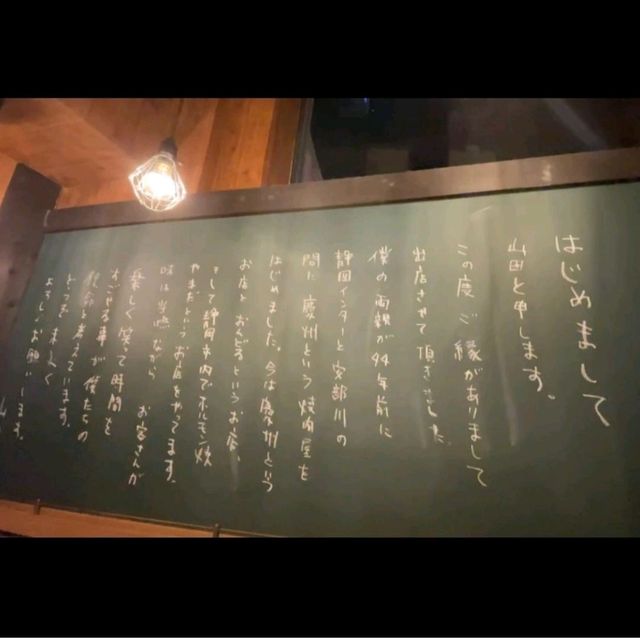 はじめまして
山田と申します。
この度ご縁がありまして
出店させて頂きました。
僕の両親が44年前に
静岡インターと安部川の
間に慶州という焼肉屋を
はじめました。今は慶州という
お店と おんどるというお店、
そして静岡市内でホルモン焼
やまだというお店をやってます。
味は当然ながら お客さんが
楽しく笑って時間を
すごせる事が僕たちの
使命と考えています。
どうぞ末永く
よろしくお願いします。